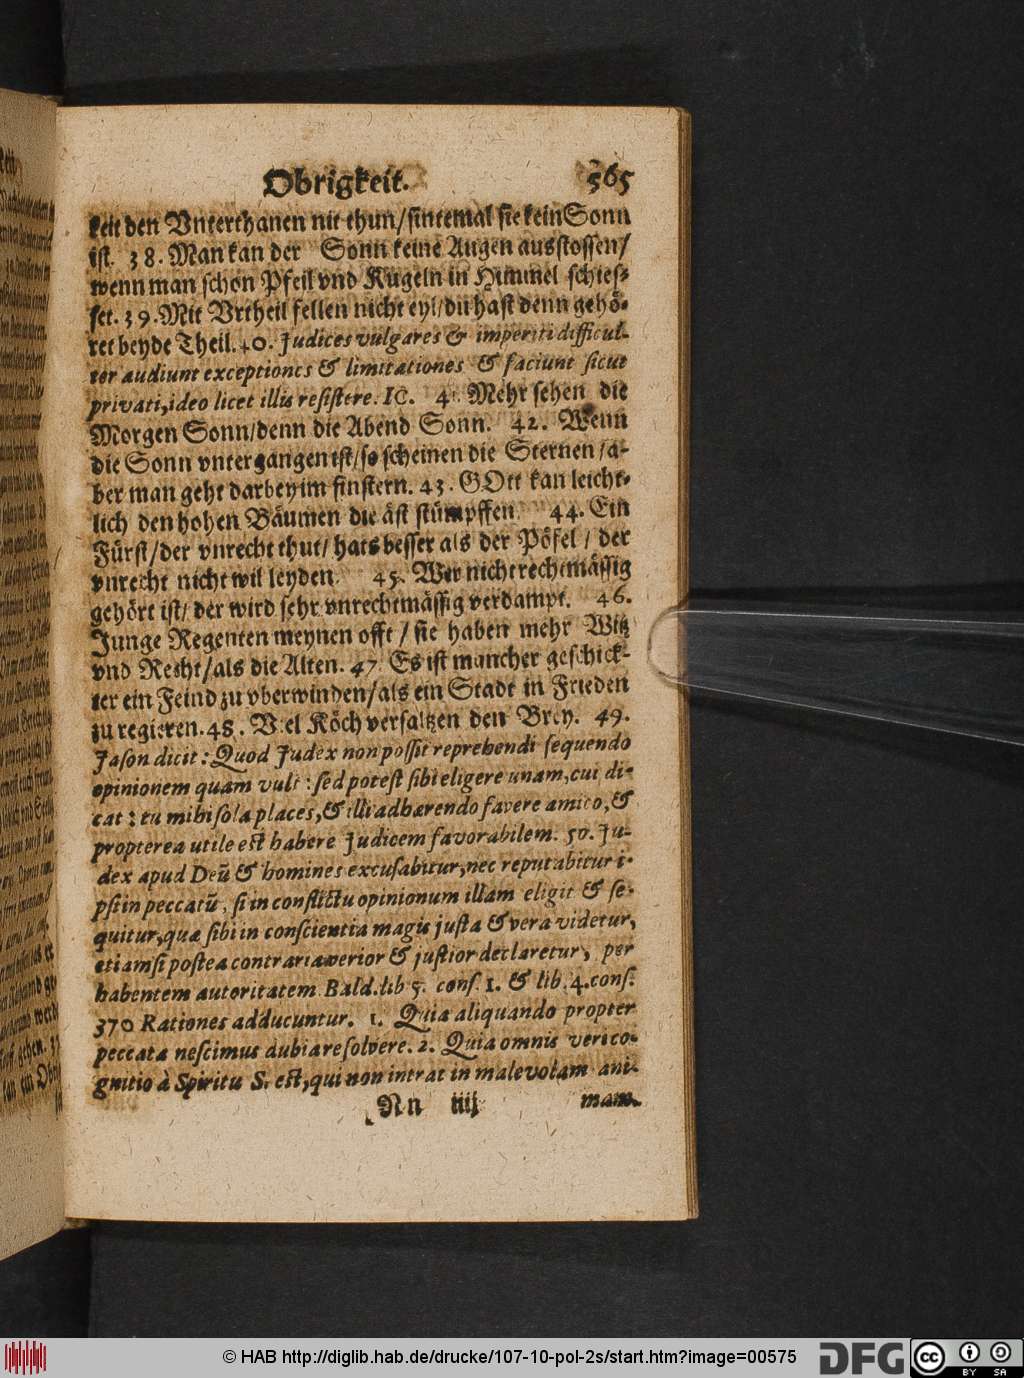 Obrigkeit. 565
keit den Vnterthanen nit thun/sintemal sie kein Sonn
ist. 38. Man kan der Sonn keine Augen ausstossen/
wenn man schon Pfeil vnd Kugeln in Himmel schies-
set. 39. Mit Vrtheil fellen nicht eyl/du hast denn gehö-
ret beyde Theil. 40. Judices vulgares & imperiti difficul-
ter audiunt exceptiones & limitationes & faciunt sicut
privati, ideo licet illis resistere. IC. 41. Mehr sehen die
Morgen Sonn/denn die Abend Sonn. 42. Wenn
die Sonn vntergangen ist/so scheinen die Sternen/a-
ber man geht darbey im finstern. 43. GOtt kan leicht-
lich den hohen Bäumen die äst stümpffen. 44. Ein
Fürst/der vnrecht thut/hats besser als der Pöfel/der
vnrecht nicht wil leyden. 45. Wer nicht rechtmässig
gehört ist/der wird sehr vnrechtmässig verdampt. 46.
Junge Regenten meynen offt/sie haben mehr Witz
vnd Recht/als die Alten. 47. Es ist mancher geschick-
ter ein Feind zu vberwinden/als ein Stadt in Frieden
zu regieren. 48. Viel Köch versaltzen den Brey. 49.
Jason dicit: Quod Judex non possit reprehendi sequendo
opinionem quam vult: sed potest sibi eligere unam, cui di-
cat: tu mihi sola places, & illi adhærendo favere amico, &
propterea utile est habere Judicem favorabilem. 50. Ju-
dex apud Deũ & homines excusabitur, nec reputabitur i-
psi in peccatũ, si in conflictu opinionum illam eligit & se-
quitur, quæ sibi in conscientia magis justa & vera videtur,
etiamsi postea contraria verior & justior declaretur, per
habentem autoritatem Bald. lib 5. cons. 1. & lib. 4. cons.
370 Rationes adducuntur. 1. Quia aliquando propter
peccata nescimus dubia resolvere. 2. Quia omnis veri co-
gnitio à Spiritu S. est, qui non intrat in malevolam ani-
Nn iiij mam.
© HAB http://diglib.hab.de/drucke/107-10-pol-2s/start.htm?image=00575
DFG
cc BY SA